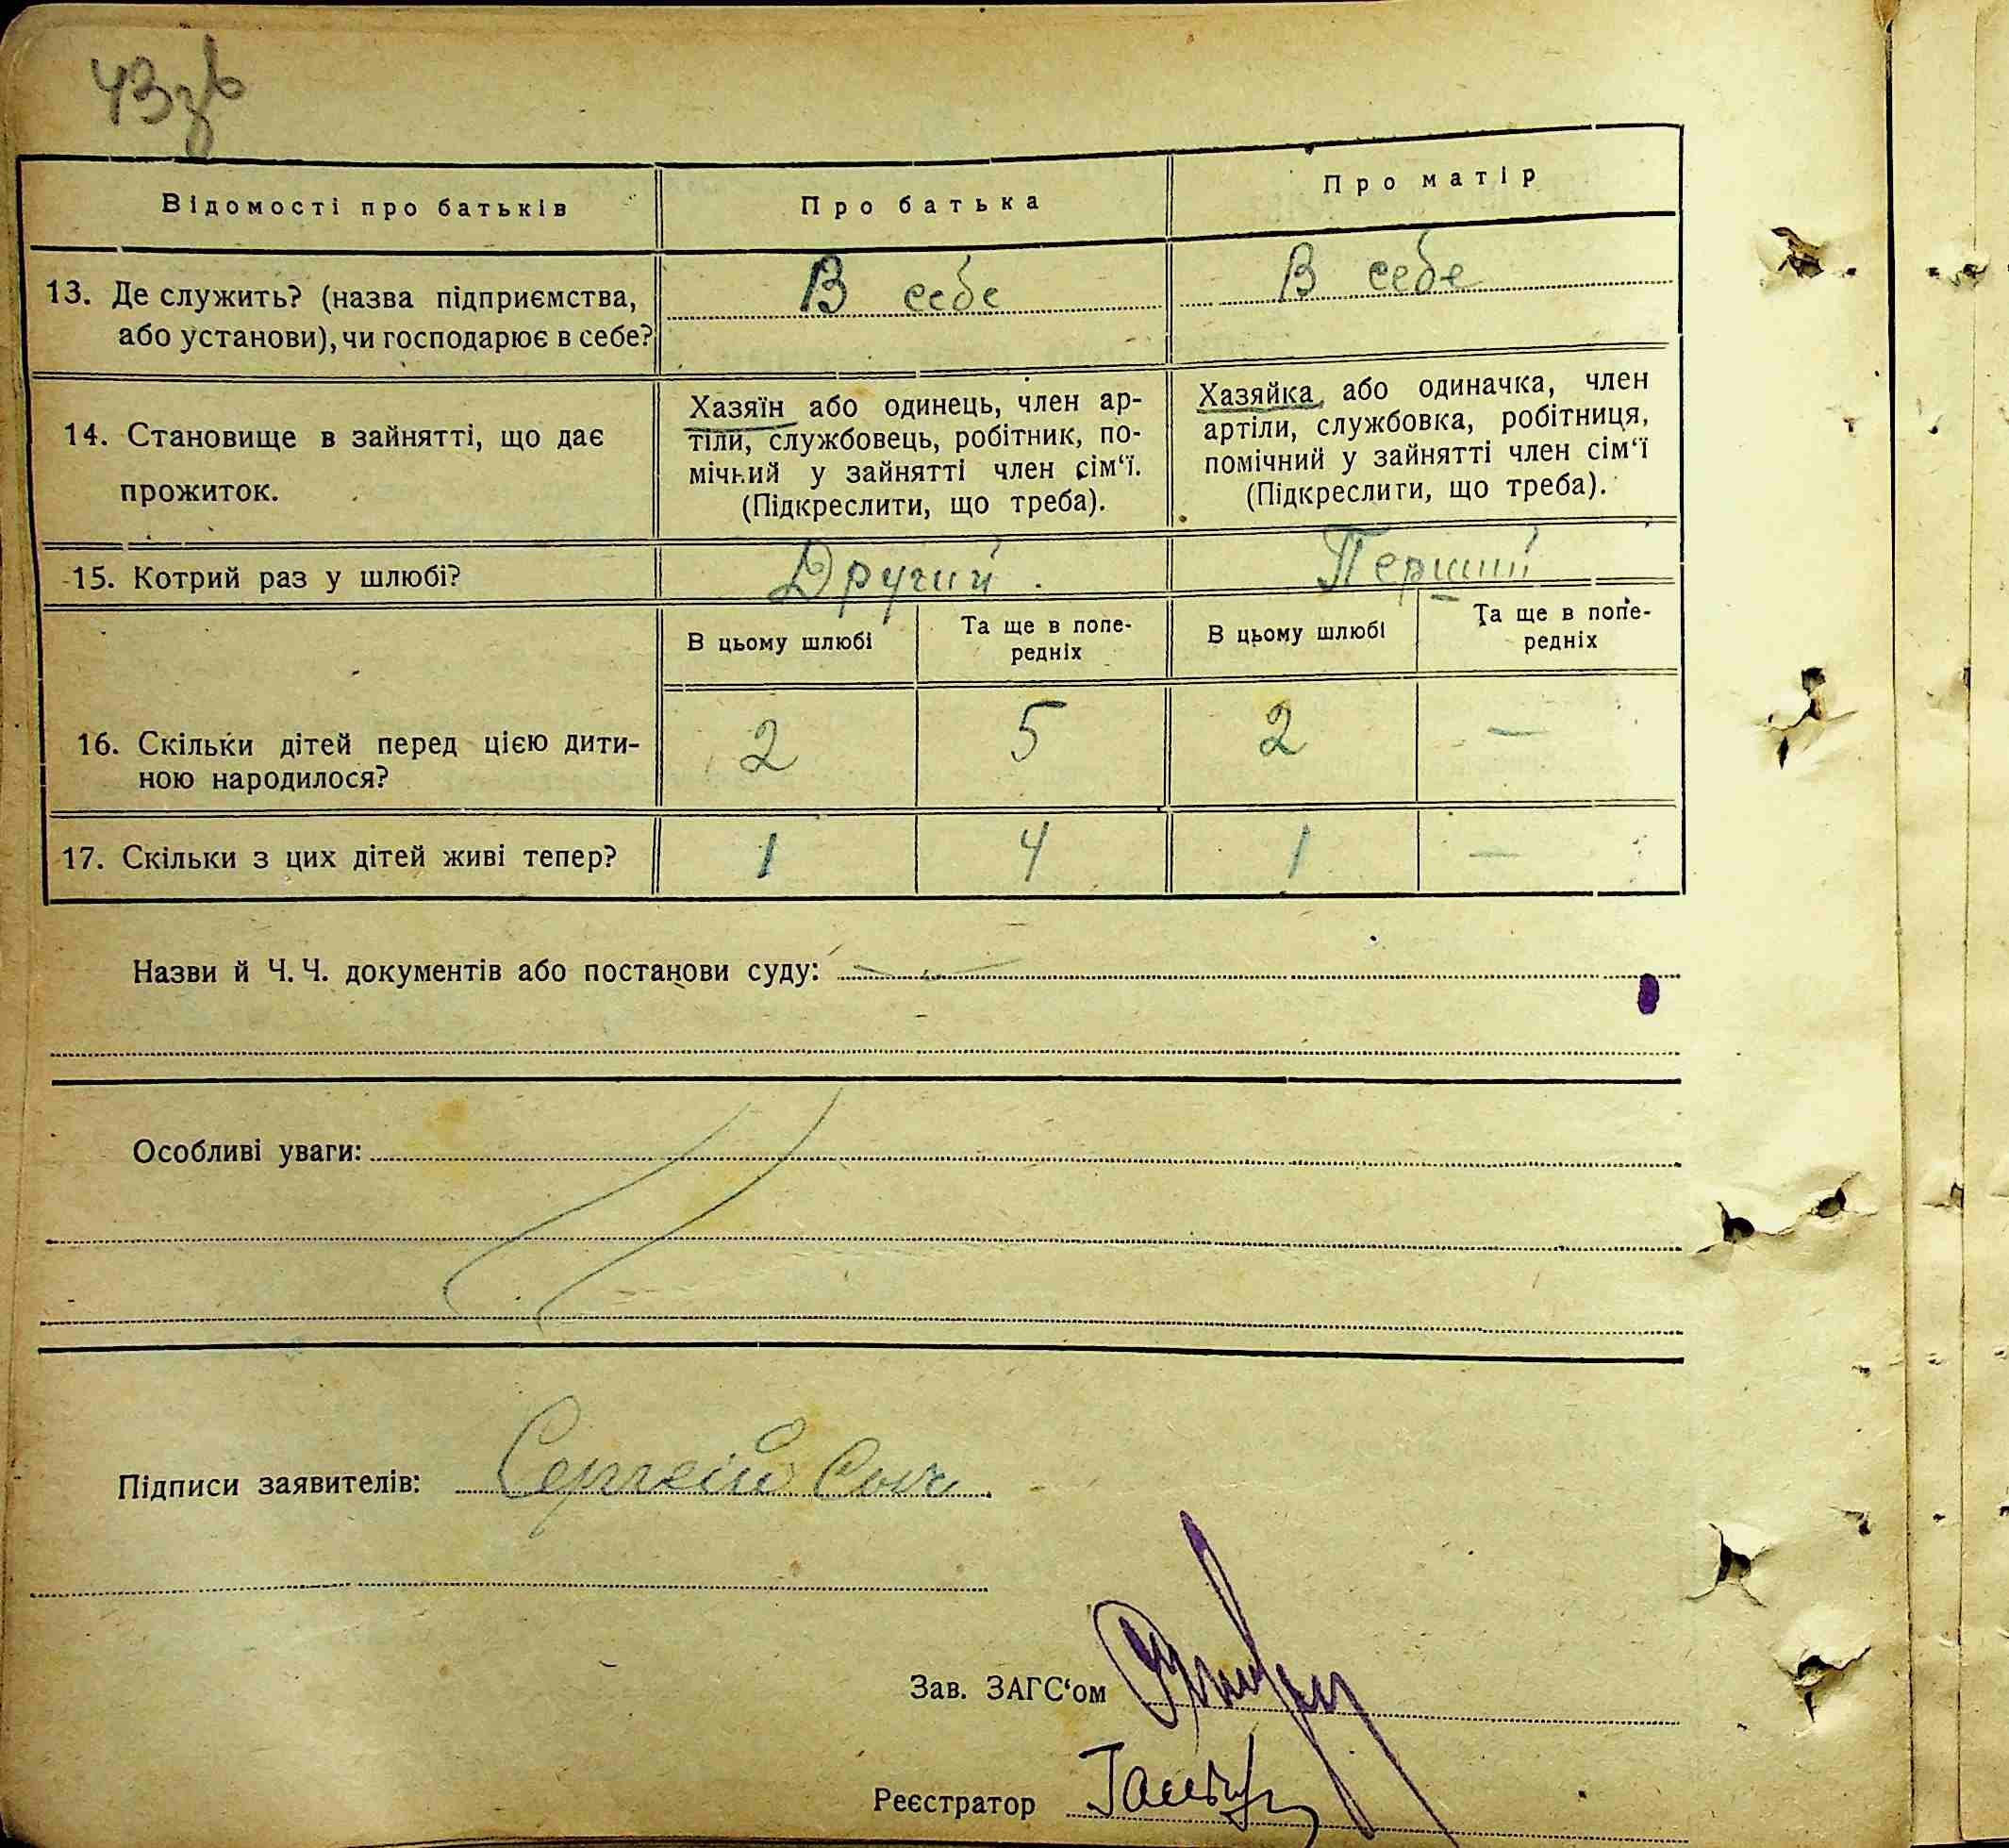 43зв
Відомості про батьків Про батька Про матір
13. Де служить? (назва підприємства, В себе В себе
або установи), чи господарює в себе?
14. Становище в зайнятті, що дає
прожиток.
Хазяїн або одинець, член ар-
тіли, службовець, робітник, по-
мічний у зайнятті член сім‘ї.
(Підкреслити, що треба).
Хазяйка або одиначка, член
артіли, службовка, робітниця,
помічний у зайнятті член сім‘ї
(Підкреслити, що треба).
15. Котрий раз у шлюбі? Другий. Перший
В цьому шлюбі Та ще в попе-
редніх
В цьому шлюбі Та ще в попе-
редніх
16. Скільки дітей перед цією дити-
ною народилося?
2 5 2 —
17. Скільки з цих дітей живі тепер? 1 4 1 —
Назви й Ч. Ч. документів або постанови суду:
Особливі уваги:
Підписи заявителів:
Зав. ЗАГС‘ом
Реєстратор